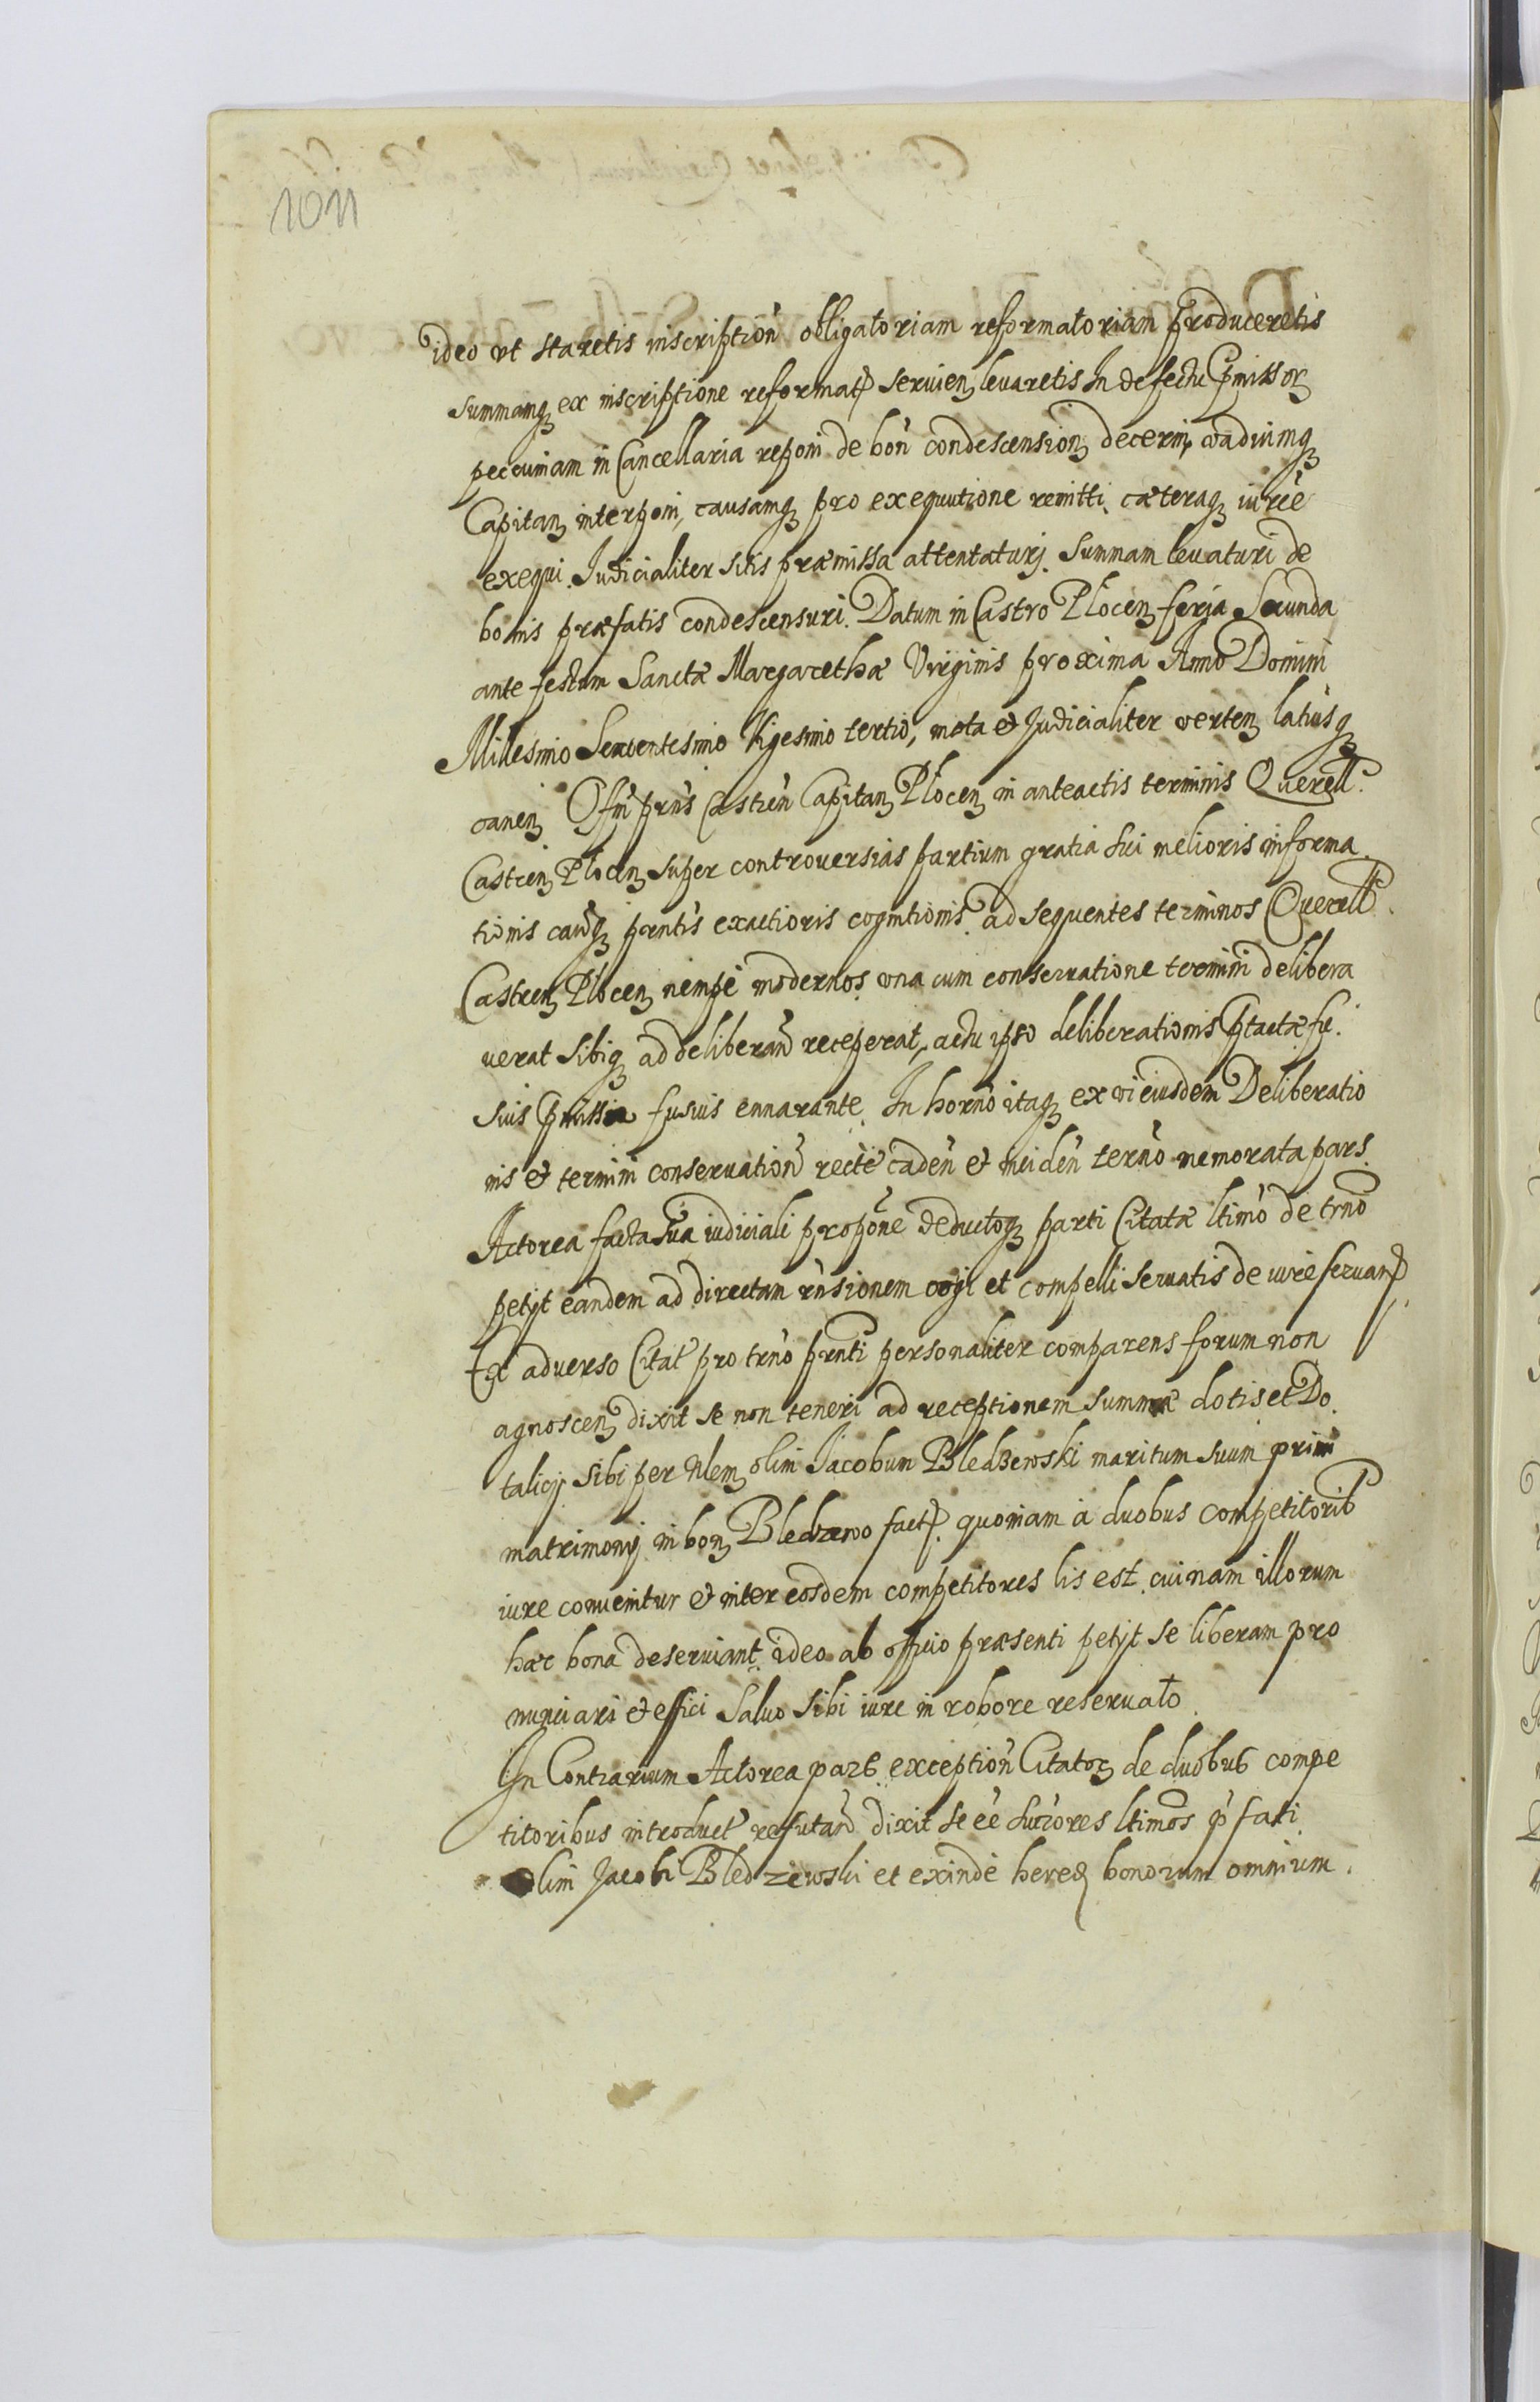 1011
ideo vt staretis inscriptioñ obligatoriam reformatoriam produceretis
summamq ex inscriptione reformat seruien leuaretis In defectu pmissor
pecuniam in Cancellaria reponi de boñ condescension decerni, vadiumq
Capitan interponi, causamq pro exequutione remitti, cæteraq iurẽ
exequi. Judicialiter sitis præmissa attentaturj. Summam leuaturi de
bonis præfatis condescensuri. Datum in Castro Plocen ferja Secunda
ante festum Sanctæ Margarethæ Virginis proxima Anno Domini
Millesimo Sexcentesimo Vigesimo tertio, mota et Judicialiter verten latiusq
canen Offm prñs Castren Capitan Plocen in anteactis terminis Querell.
Castren Plocen super controuersias partium gratia sui melioris informa
tionis causq prntis exactioris cognitionis ad sequentes terminos Querell.
Castren Plocen nempe modernos vna cum conseruatione termini delibera
uerat sibiq ad deliberand receperat, actu ipso deliberationis ptactæ fu.
sius fusius ennarante. In horno itaq ex vi eiusdem Deliberatio
nis et termini conseruation recte caden et inciden terño memorata pars
Actorea facta sua iudiciali propoñe deductoq parti Citatæ ltimo de trño
petijt eandem ad directam rñsionem cogi et compelli seruatis de iure seruand
Ex aduerso Citat pro trño prnti personaliter comparens forum non
agnoscen dixit se non teneri ad receptionem summæ dotis et Do.
talicij sibi per Nlem olim Jacobum Bledzewski maritum suum primi
matrimonij in bon Bledzewo fact. quoniam à duobus competitorib
iure conuenitur et inter eosdem competitores lis est, cuinam illorum
hæc bona deseruiant, ideo ab officio præsenti petijt se liberam pro
nunciari et effici Saluo sibi iure in robore reseruato.
In Contrarium Actorea pars exceptioñ Citator de duobus compe
titoribus introduct refutand dixit se eẽ sucõres ltimos pfati
olim Jacobi Bledziewski et exinde hered bonorum omnium.